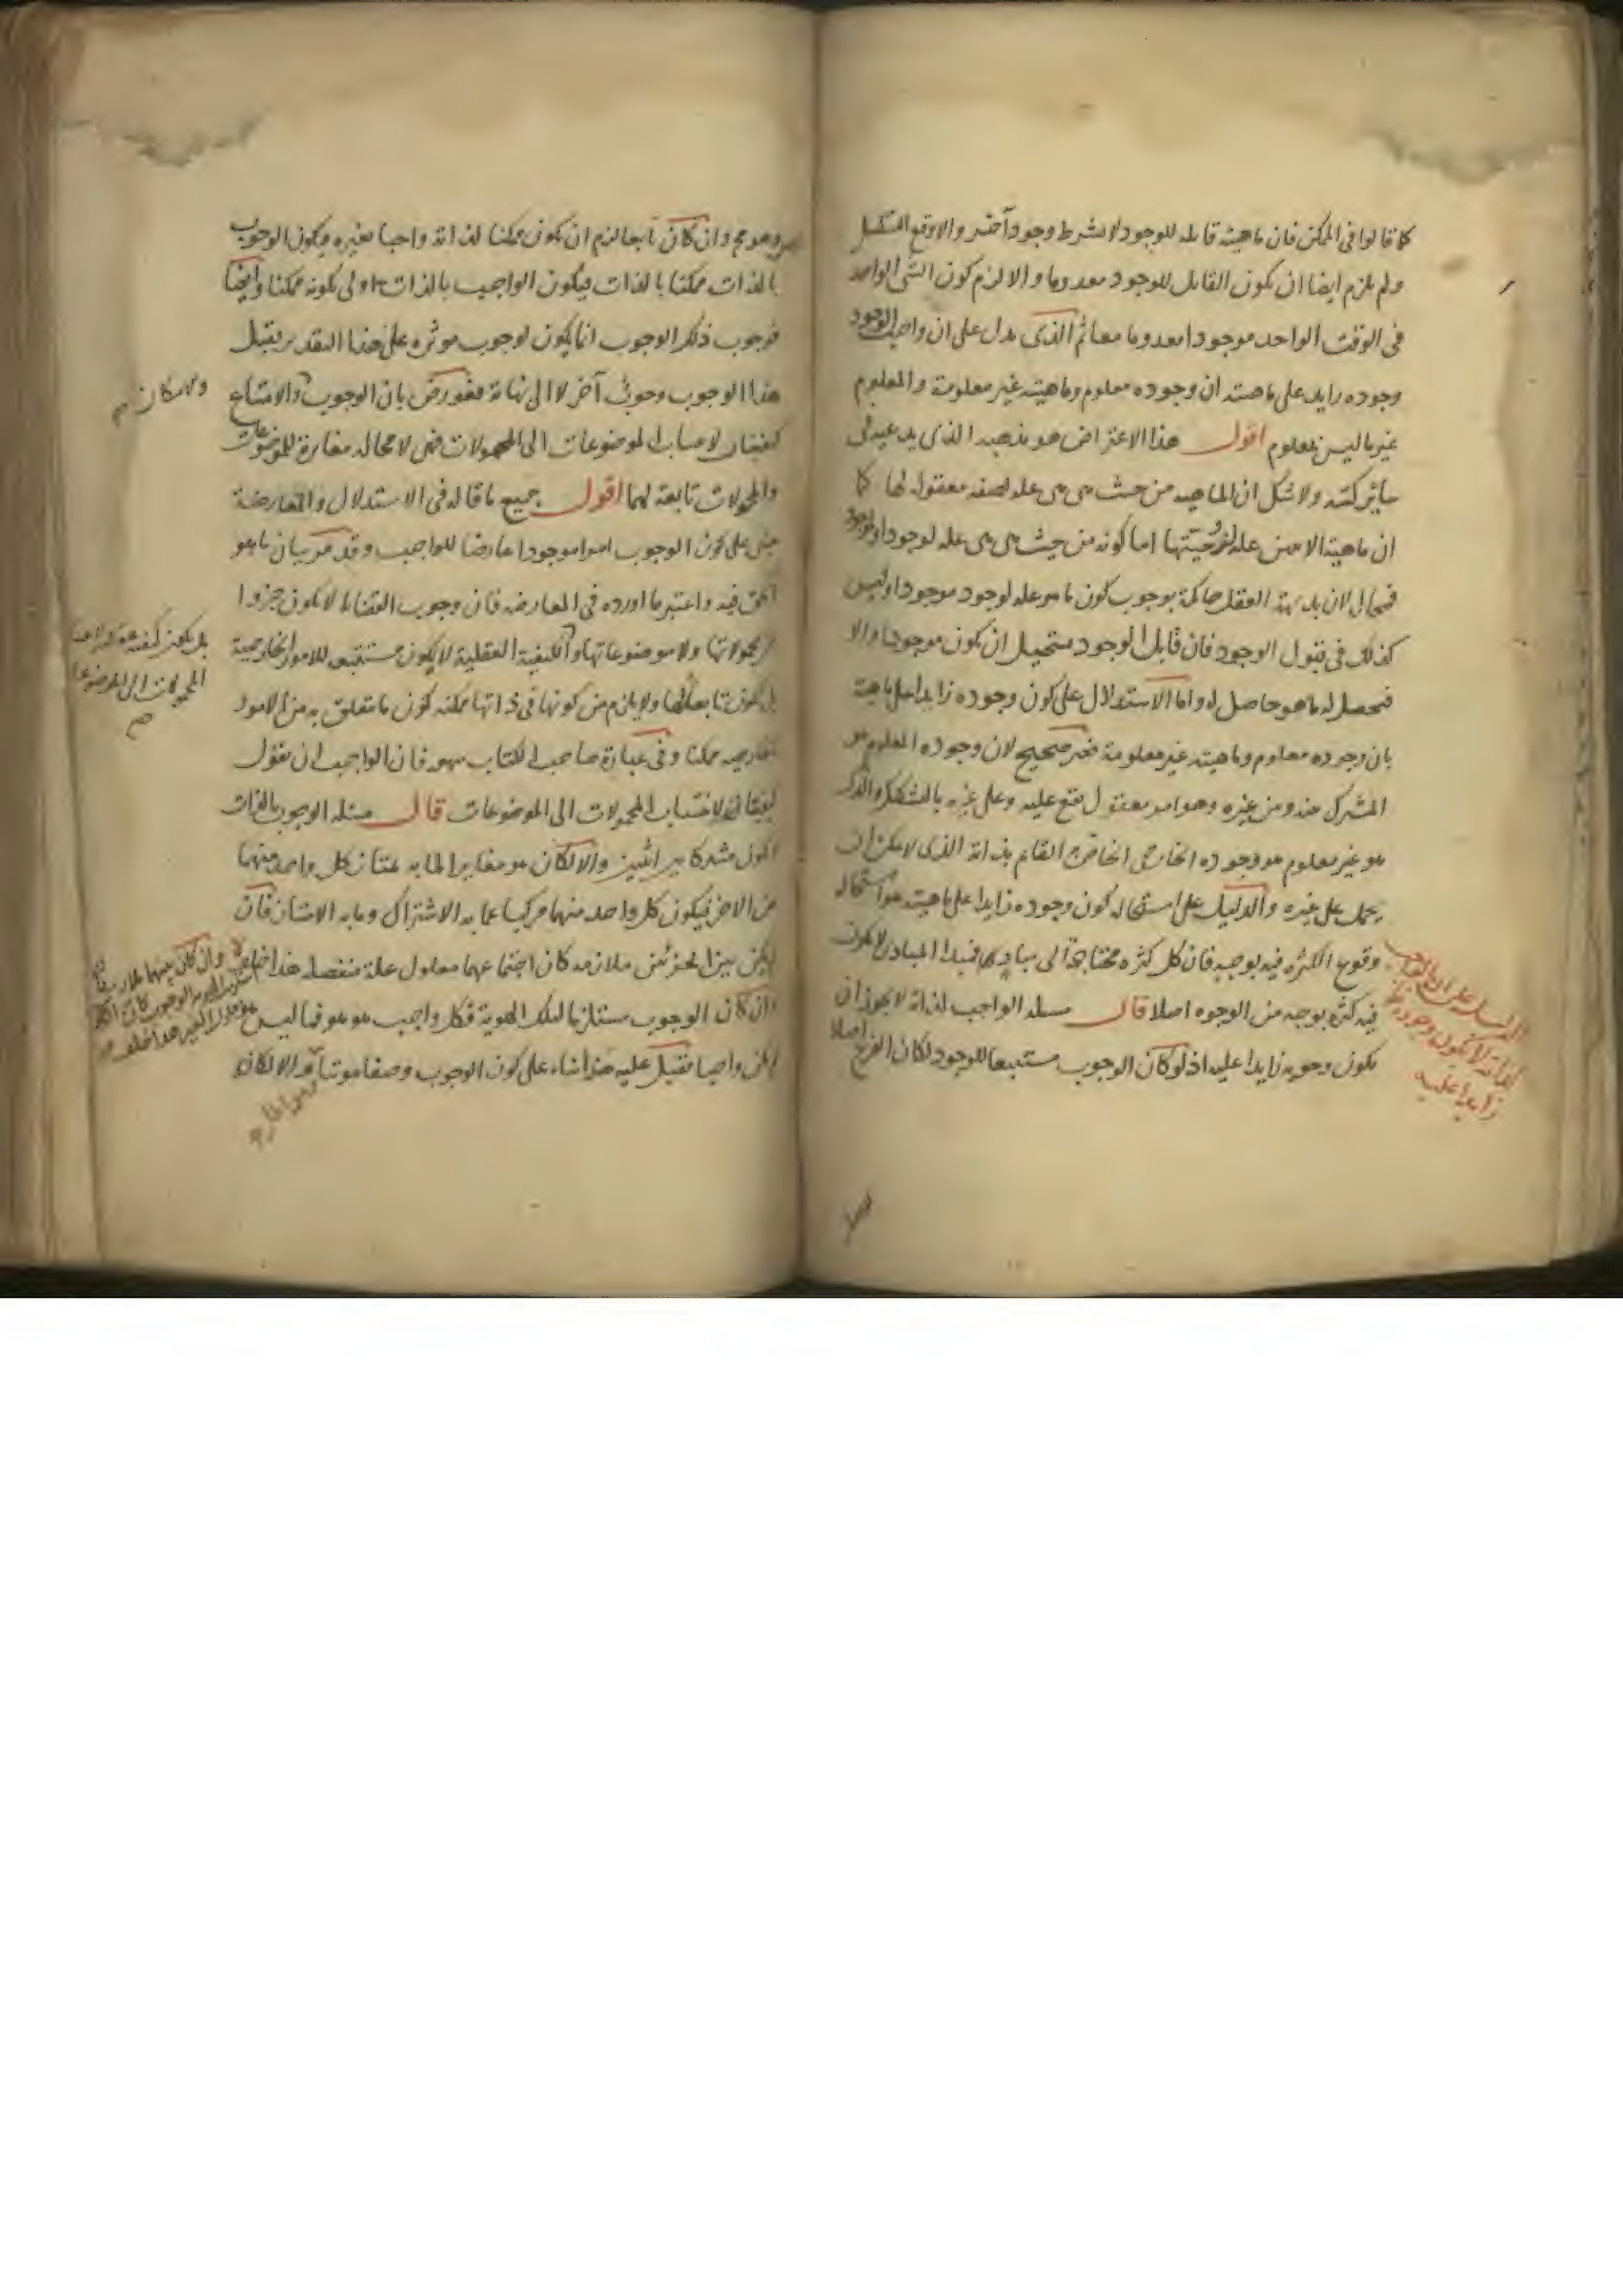 كما قالوا فى الممكن فان ماهيته قابلة للوجود لا بشرط وجود آخر والا وقع التسلسل
ولم يلزم ايضا ان يكون القابل للوجود معدوما والا لزم كون الشى الواحد
فى الوقت الواحد موجودا معدوما معا ثم الذى يدل على ان واجب الوجود
وجوده زايد على ماهيته ان وجوده معلوم وماهيته غير معلومة والمعلوم
غير ما ليس بمعلوم اقول هذا الاعتراض هو مذهبه الذى يدعيه فى
ساير كتبه ولا شك ان الماهية من حيث هى هى علة لصفة معقولة لها كما
ان ماهية الاثنين علة لزوجيتها اما كونه من حيث هى هى علة لوجود او لموجود
فمحال لان بديهة العقل حاكمة بوجوب كون ما هو علة لوجود موجودا وليس
كذلك فى قبول الوجود فان قابل الوجود مستحيل ان يكون موجودا والا
فيحصل له ما هو حاصل له واما الاستدلال على كون وجوده زايدا على ماهيته
بان وجوده معلوم وماهيته غير معلومة فغير صحيح لان وجوده المعلوم هو
المشترك بينه وبين غيره وهو امر معقول يقع عليه وعلى غيره بالتشكيك والذى
هو غير معلوم هو وجوده الخارجى الخاص القايم بذاته الذى لا يمكن ان
يحمل على غيره والدليل على استحالة كون وجوده زايدا على ماهيته هو استحالة
وقوع الكثرة فيه بوجه فان كل كثرة محتاجة الى مباديها فمبدا المبادى لا يكون
فيه كثرة بوجه من الوجوه اصلا قال مسئلة الواجب لذاته لا يجوز ان
يكون وجوبه زايدا عليه اذ لو كان الوجوب مستتبعا للوجود لكان الفرع اصلا
الدليل على ان الواجب
لذاته لا يكون وجوده
زايدا عليه
وهو مح وان كان تابعا لزم ان يكون ممكنا لذاته واجبا بغيره فيكون الوجوب
بالذات ممكنا بالذات فيكون الواجب بالذات اولى بكونه ممكنا وايضا
فوجوب ذلك الوجوب انما يكون لوجوب موثره على هذا التقدير فقبل
هذا الوجوب وجوب آخر لا الى نهاية فعورض بان الوجوب والامتناع
والامكان
كيفيتان لانتساب الموضوعات الى المحمولات فهى لا محالة مغايرة للموضوعات
والمحمولات تابعة لهما اقول جميع ما قاله فى الاستدلال والمعارضة
مبنى على كون الوجوب امرا موجودا عارضا للواجب وقد مر بيان ما هو
الحق فيه واعتبر ما اورده فى المعارضة فان وجوب القضايا لا يكون جزوا
من محمولاتها ولا موضوعاتها والكيفية العقلية لا يكون مستتبع للامور الخارجية
المحمولات الى الموضوعات
بل يكون تابعا لها ولا يلزم من كونها فى ذاتها ممكنة كون ما يتعلق به من الامور
الخارجية ممكنا وفى عبارة صاحب الكتاب سهو فان الواجب ان يقول
كيفيتان لانتساب المحمولات الى الموضوعات قال مسئلة الوجوب بالذات
لا يكون مشتركا بين اثنين والا لكان هو مغايرا لما به يمتاز كل واحد منهما
عن الاخر فيكون كل واحد منهما مركبا عما به الاشتراك وما به الامتياز فان
لم يكن بين الجزئين ملازمة كان اجتماعهما معلول علة منفصلة هذا خلف
وان كان بينهما ملازمة
ان كان الوجوب مستلزما لتلك الهوية فكل واجب هو هو فما ليس هو
لم يكن واجبا فقيل عليه هذا بناء على كون الوجوب وصفا ثبوتيا والا لكان